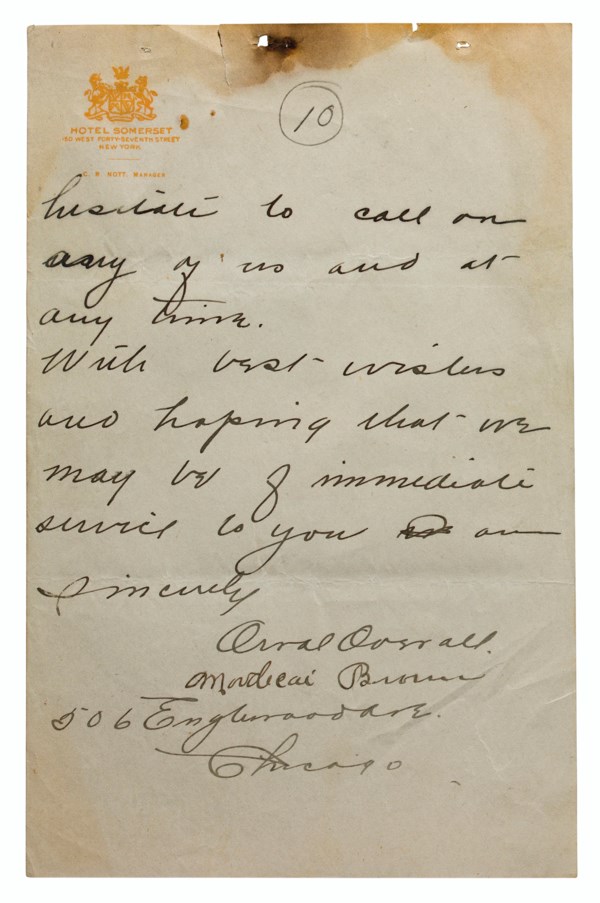 HOTEL SOMERSET
150 WEST FORTY-SEVENTH STREET
NEW YORK
C. R. NOTT, MANAGER
10
hesitate to call on
any of us and at
any time.
With best wishes
and hoping that we
may be of immediate
service to you am
Sincerely
Orval Overall.
Mordecai Brown
506 Englewood Ave.
Chicago